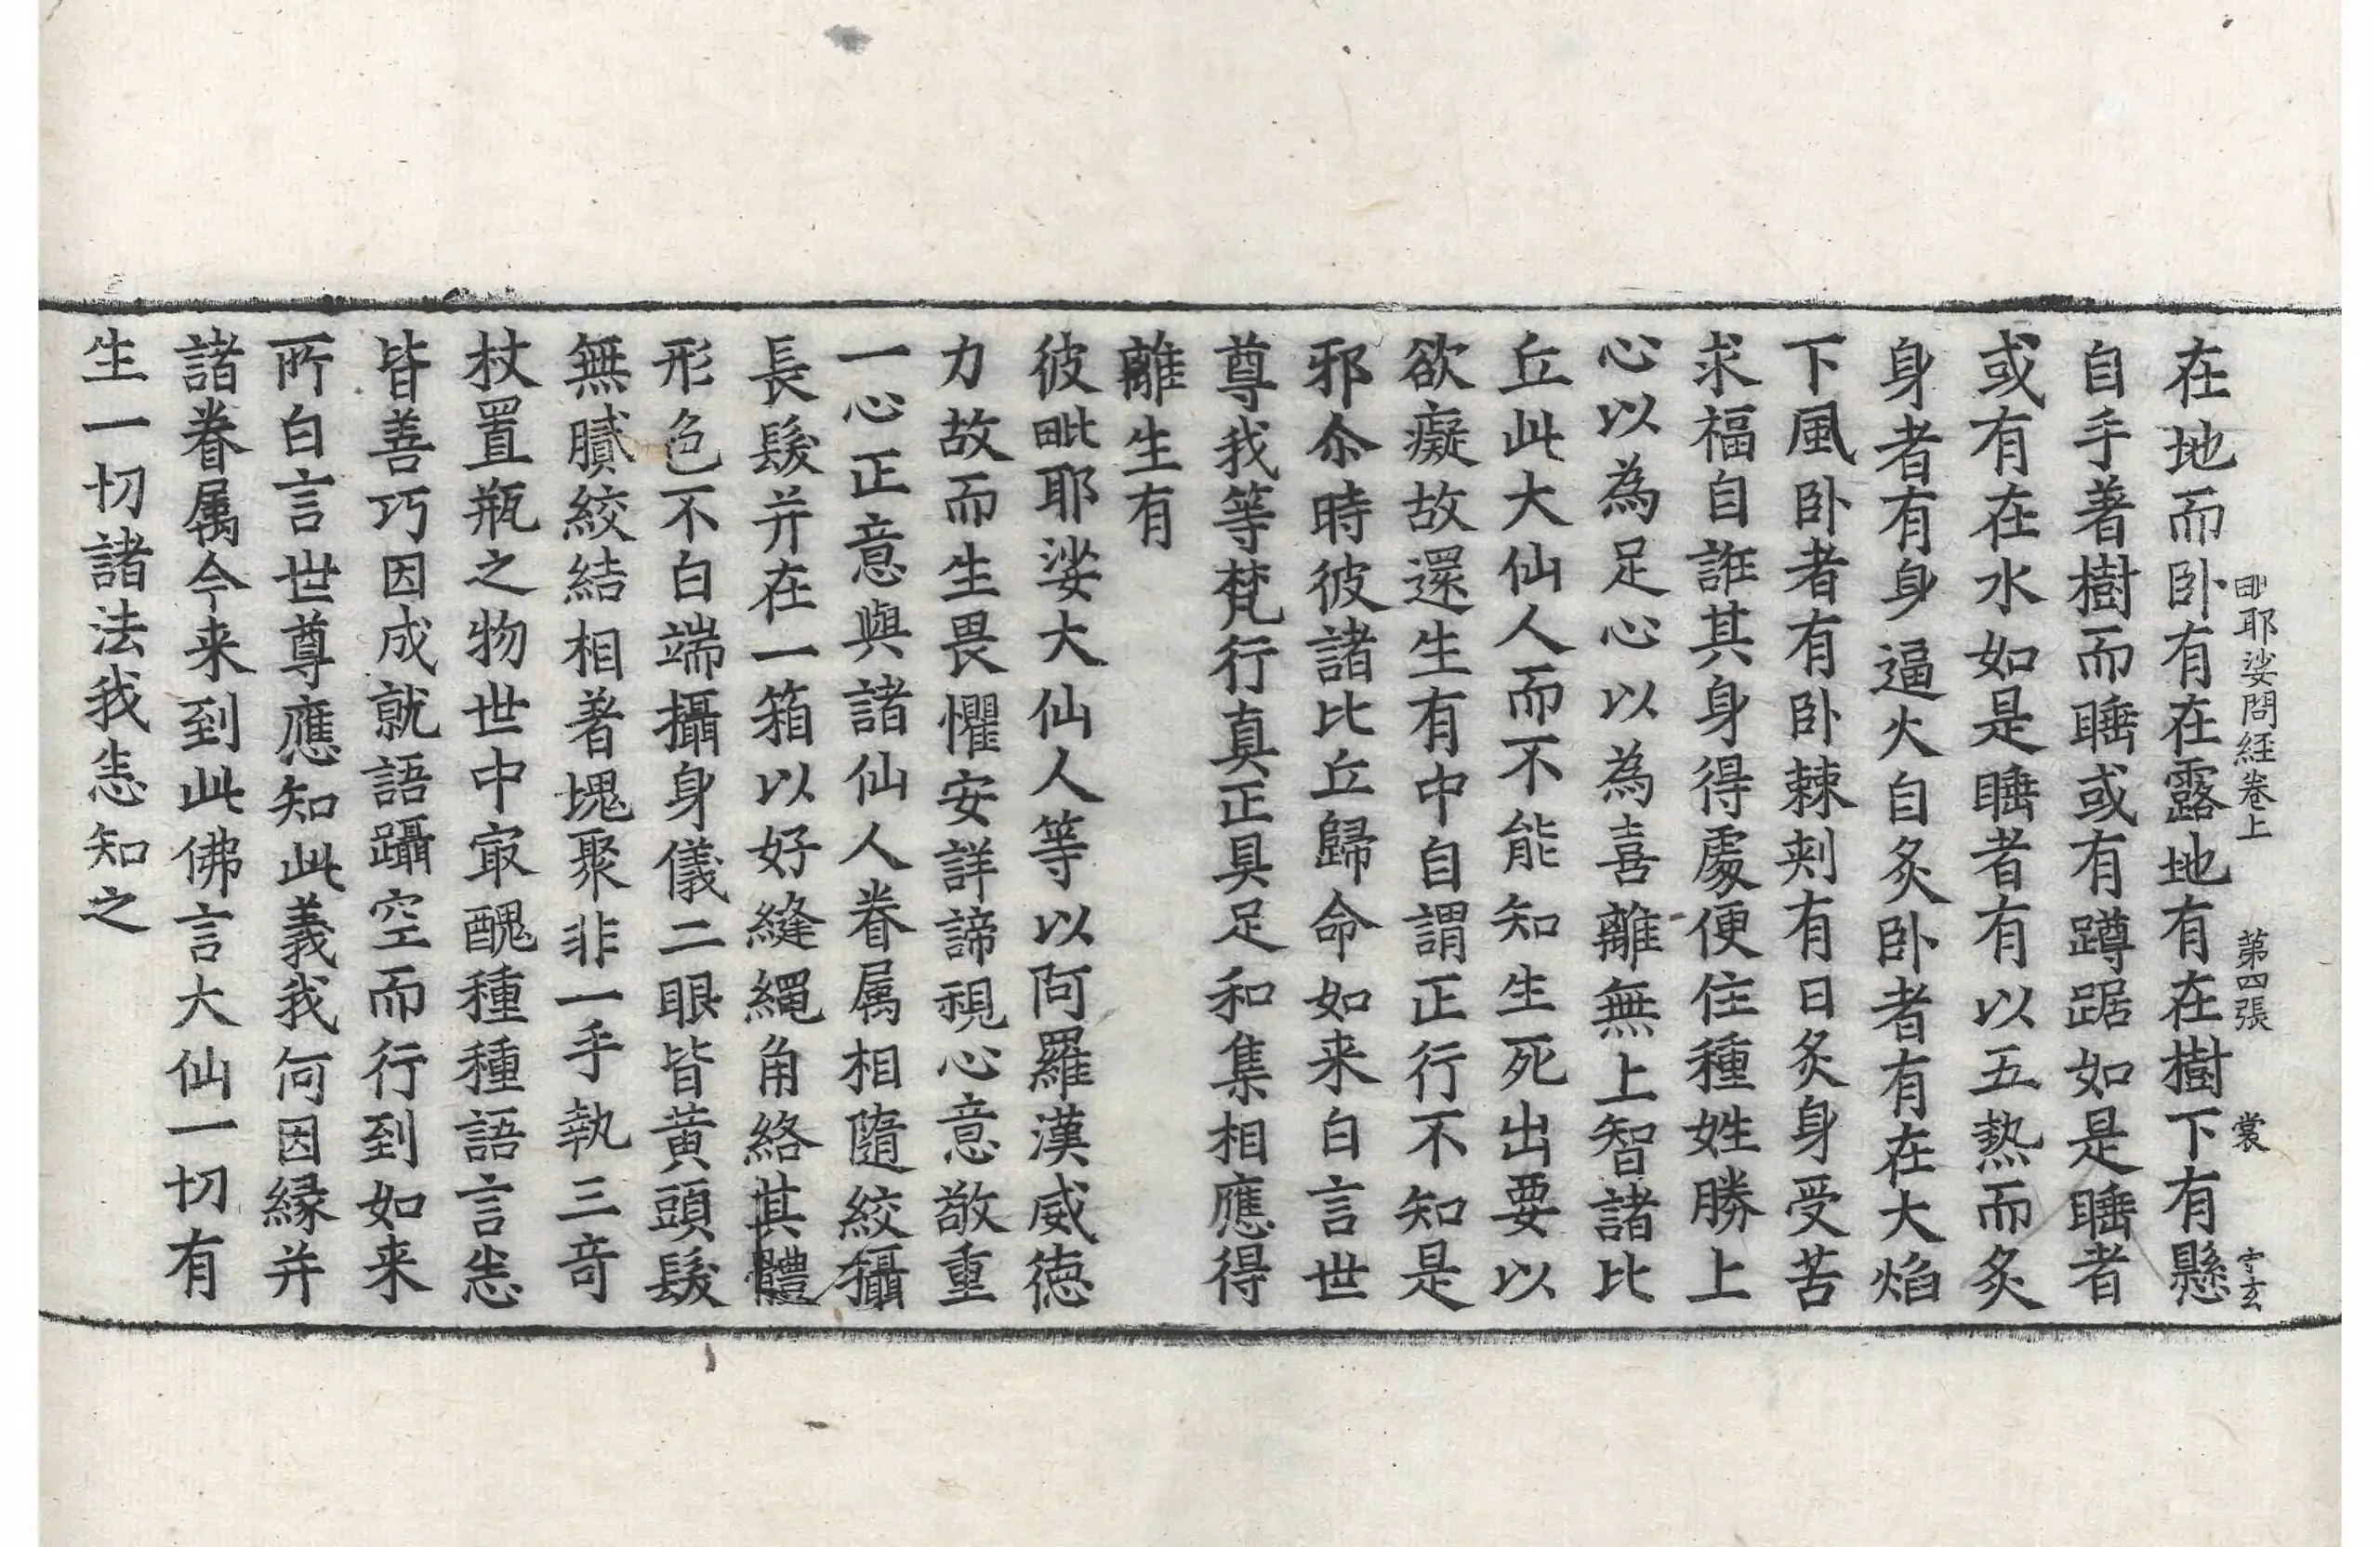 毗耶娑問経卷上　第四張　裳　守玄
在地而卧有在露地有在樹下有懸
自手著樹而睡或有蹲踞如是睡者
或有在水如是睡者有以五熱而炙
身者有身逼火自炙卧者有在大焰
下風卧者有卧棘刺有日炙身受苦
求福自誑其身得處便住種姓勝上
心以為足心以為喜離無上智諸比
丘此大仙人而不能知生死出要以
欲癡故還生有中自謂正行不知是
邪尒時彼諸比丘歸命如来白言世
尊我等梵行真正具足和集相應得
離生有
彼毗耶娑大仙人等以阿羅漢威徳
力故而生畏懼安詳諦視心意敬重
一心正意與諸仙人眷属相隨絞攝
長髮并在一箱以好縫繩角絡其體
形色不白端攝身儀二眼皆黄頭髮
無膩絞結相著塊聚非一手執三奇
杖置瓶之物世中㝡醜種種語言悉
皆善巧因成就語躡空而行到如来
所白言世尊應知此義我何因縁并
諸眷属今来到此佛言大仙一切有
生一切諸法我悉知之